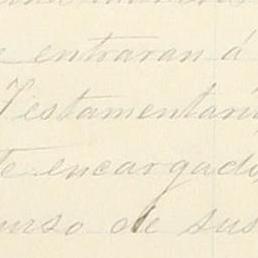 e entraran á
Testamentari
te encargado,
urso de sus